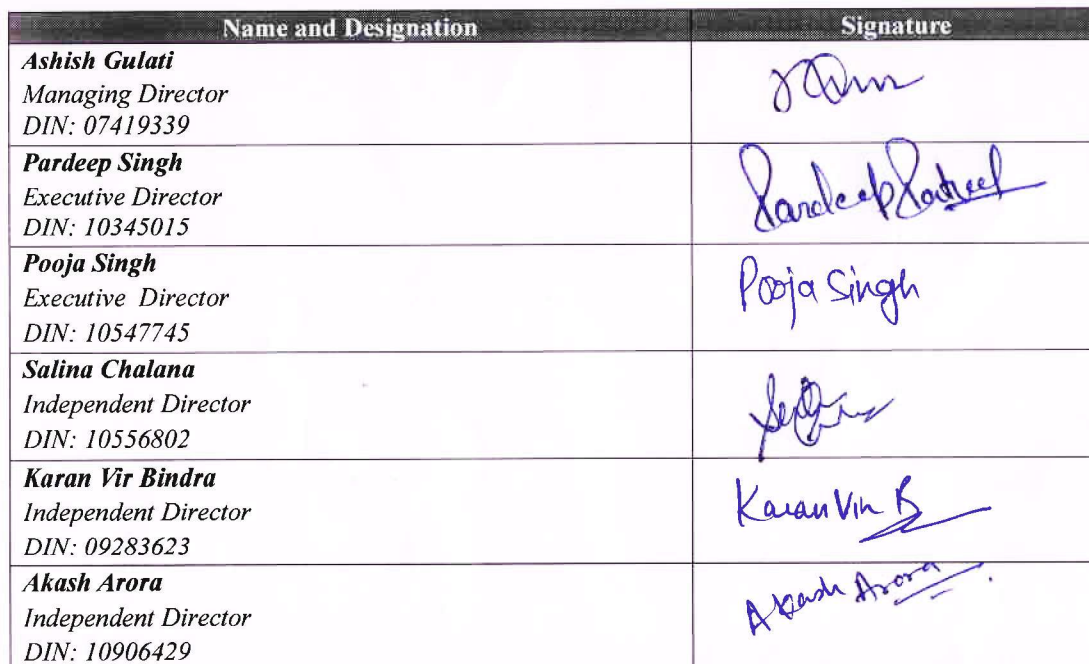 Name and Designation Signature
Ashish Gulati
Managing Director
DIN: 07419339
Pardeep Singh
Executive Director
DIN: 10345015
Pardeep
Pooja Singh
Executive Director
DIN: 10547745
Pooja Singh
Salina Chalana
Independent Director
DIN: 10556802
Karan Vir Bindra
Independent Director
DIN: 09283623
Karan Vir B
Akash Arora
Independent Director
DIN: 10906429
Akash Arora